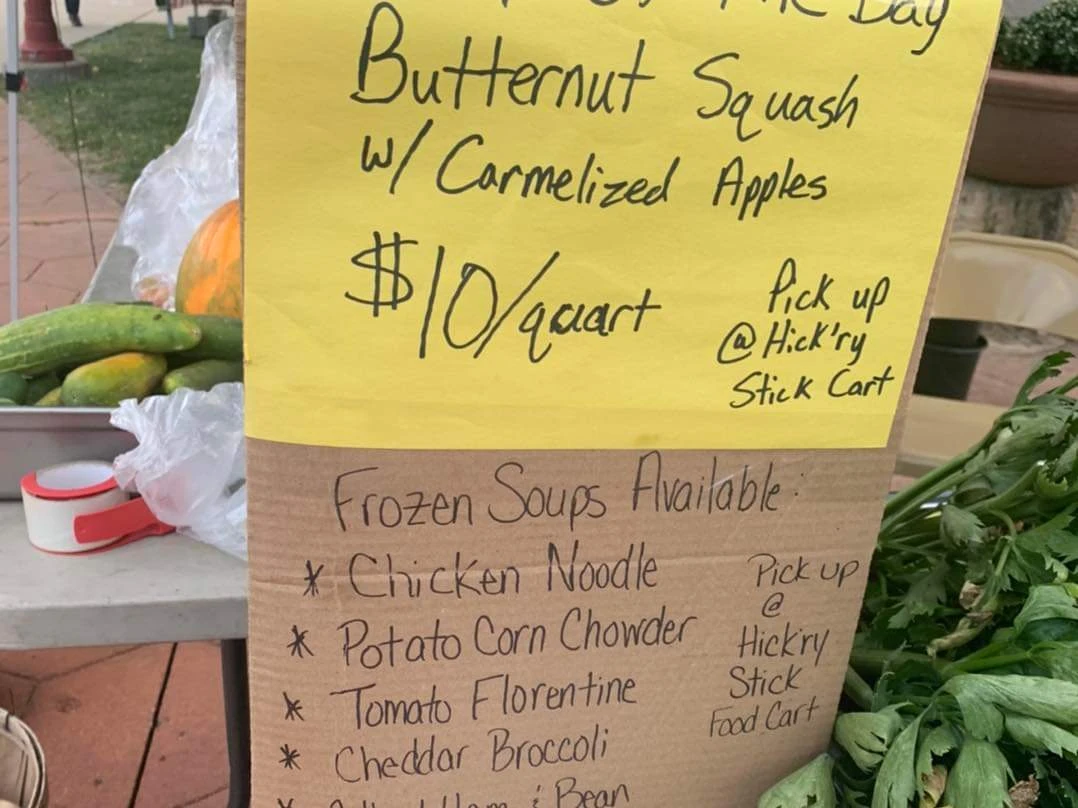 The Day
Butternut Squash
w/ Carmelized Apples
$10/quart
Pick up
@ Hick'ry
Stick Cart
Frozen Soups Available:
* Chicken Noodle
* Potato Corn Chowder
* Tomato Florentine
* Cheddar Broccoli
Bean
Pick up
@
Hick'ry
Stick
Food Cart